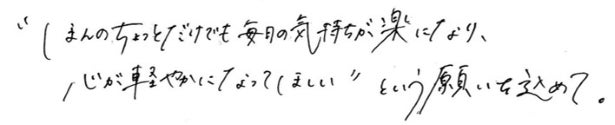 “ほんのちょっとだけでも毎日の気持ちが楽になり、
心が軽やかになってほしい”という願いを込めて。